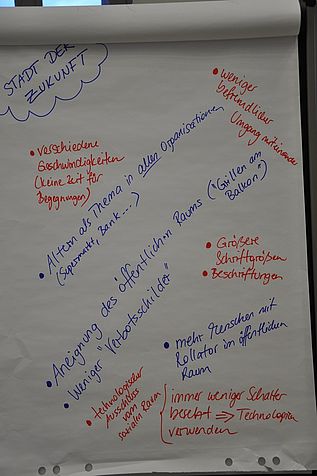 STADT DER
ZUKUNFT
• weniger
befremdlicher
Umgang miteinander
• verschiedene
Geschwindigkeiten
(keine Zeit für
Begegnungen)
• Altern als Thema in allen Organisationen
(Supermarkt, Bank....)
• Aneignung des öffentlichen Raums ("Grillen am
Balkon")
• Weniger "Verbotsschilder"
• Größere
Schriftgrößen
• Beschriftungen
• mehr Menschen mit
Rollator im öffentlichen
Raum
• technologischer
Ausschluss
vom
sozialen Raum
immer weniger Schalter
besetzt ⇒ Technologien
verwenden